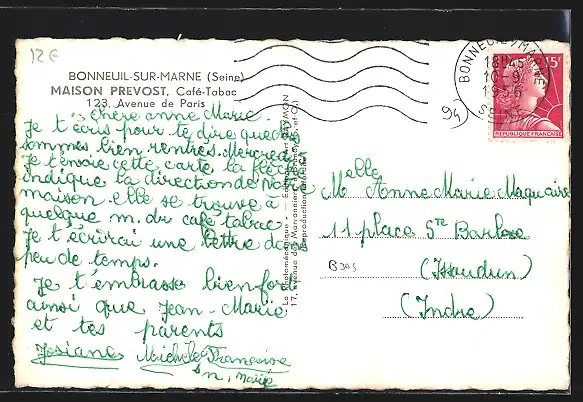 12€
BONNEUIL-SUR-MARNE (Seine)
MAISON PREVOST, Café-Tabac
123, Avenue de Paris
chère anne Marie.
Je t'écris pour te dire que
sommes bien rentrés Mercredi
Je t'envoie cette carte la flèche
indique la direction de
maison. elle se trouve à
quelque m. du café tabac
Je t'écrirai une lettre
peu de temps.
Je t'embrasse bien fort
ainsi que Jean-Marie
et tes parents
Josiane Michèle Francoise
BONNEUIL S/MARNE
18H45
10-9
1956
SEINE
94)
15F
REPUBLIQUE FRANÇAISE
Melle Anne Marie
11 place Ste Barbe
(Issoudun)
(Indre)
B305